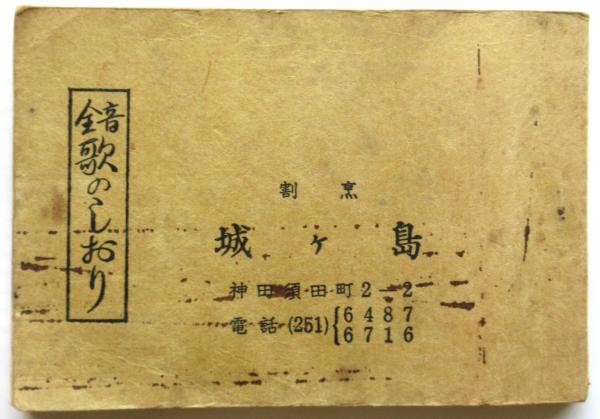 全音歌のしおり
割烹
城ヶ島
神田須田町2−2
電話(251){6487
6716